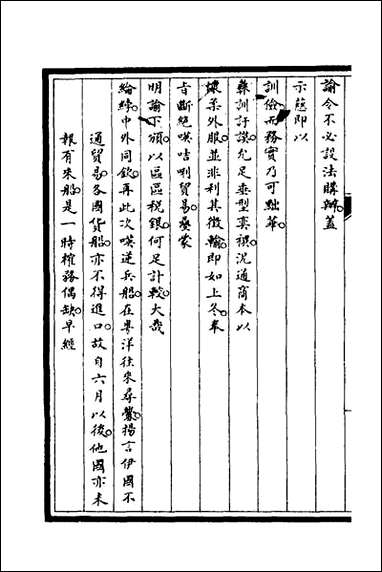 諭令不必設法購辦蓋
示葸即以
訓儉而務實乃可黜華
彝訓訏謨允足垂型奕禩況通商本以
懷柔外服並非利其徵輸即如上冬奉
旨斷絕㗎咭唎貿易疊蒙
明諭下頒以區區稅銀何足計較大哉
綸綍中外同欽再此次㗎逆兵船在粵洋往來尋釁揚言伊國不
通貿易各國貨船亦不得進口故自六月以後他國亦未
報有來船是一時榷務偶缺早經